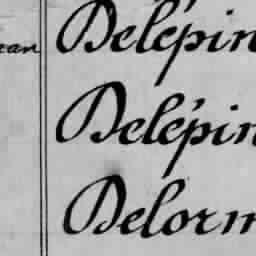 ean Delépin
Delépin
Delorm